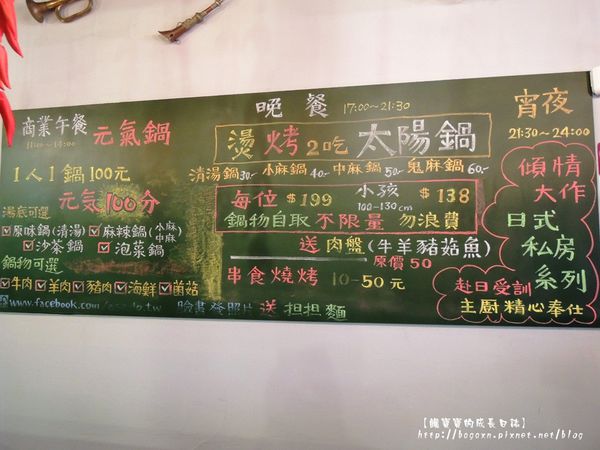 商業午餐 元氣鍋
11:00~14:00
1人1鍋100元
元氣100分
湯底可選
原味鍋(清湯) 麻辣鍋(小麻 中麻)
沙茶鍋 泡菜鍋
鍋物可選
牛肉 羊肉 豬肉 海鮮 菌菇
www.facebook.com
臉書發照片 送 担担麵
晚餐 17:00~21:30
燙烤2吃 太陽鍋
清湯鍋30.- 小麻鍋40.- 中麻鍋50.- 鬼麻鍋60.-
每位 $199 小孩 100-130cm $138
鍋物自取 不限量 勿浪費
送 肉盤(牛羊豬菇魚)
原價50
串食燒烤 10-50元
宵夜
21:30~24:00
傾情
大作
日式
私房
系列
赴日受訓
主廚精心奉仕
http://bogoxn.pixnet.net/blog